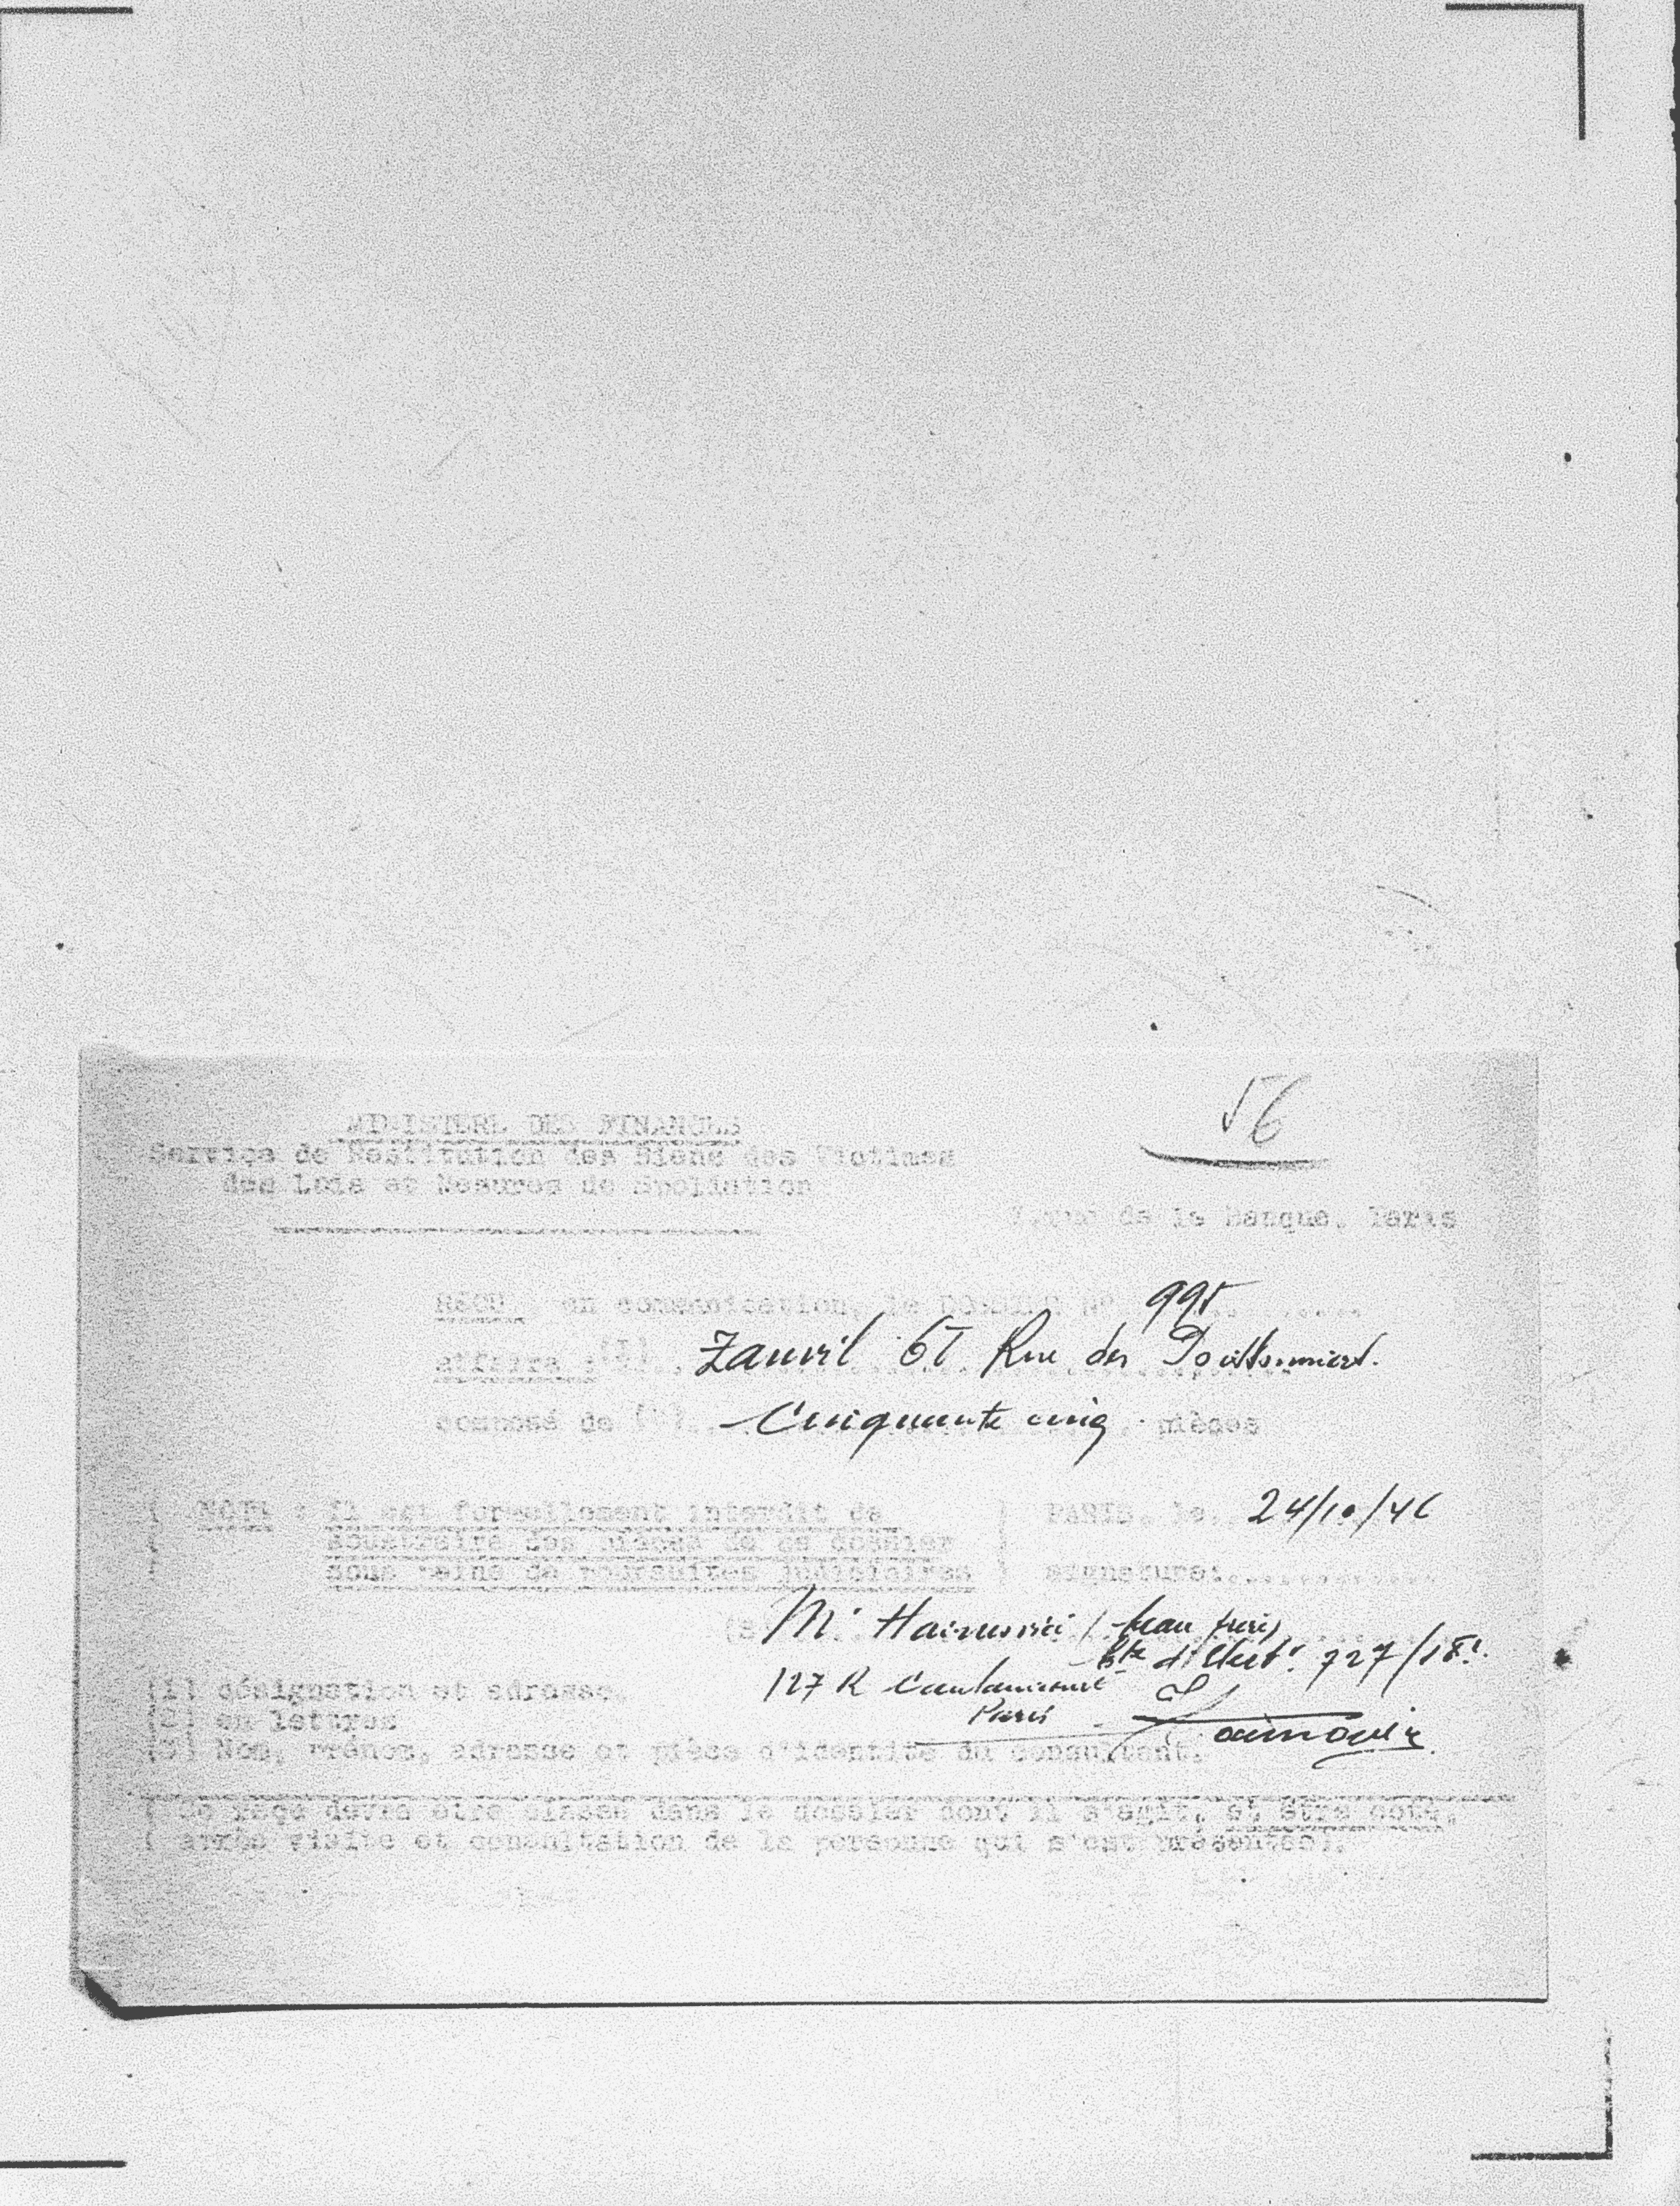 56
MINISTERE DES FINANCES
Service de Restitution des Biens des Victimes
des Lois et Mesures de Spoliation
rue de la Banque, Paris
REÇU en communication, le DOSSIER N° 995
affaire :(1) Zanvil 61 Rue des Poissonniers.
composé de (2) Cinquante cinq pièces
NOTA : Il est formellement interdit de
soustraire des pièces de ce dossier
sous peine de poursuites judiciaires
PARIS, le 24/10/46
signature:
(3) Mr / beau frère)
Cte d'Ident. 727/18e.
127 R Caulaincourt
Paris
(1) désignation et adresse.
(2) en lettres
(3) Nom, prénom, adresse et pièce d'identité du consultant.
( Ce reçu devra être classé dans le dossier dont il s'agit, et être coté,
( après visite et consultation de la personne qui s'est présentée).